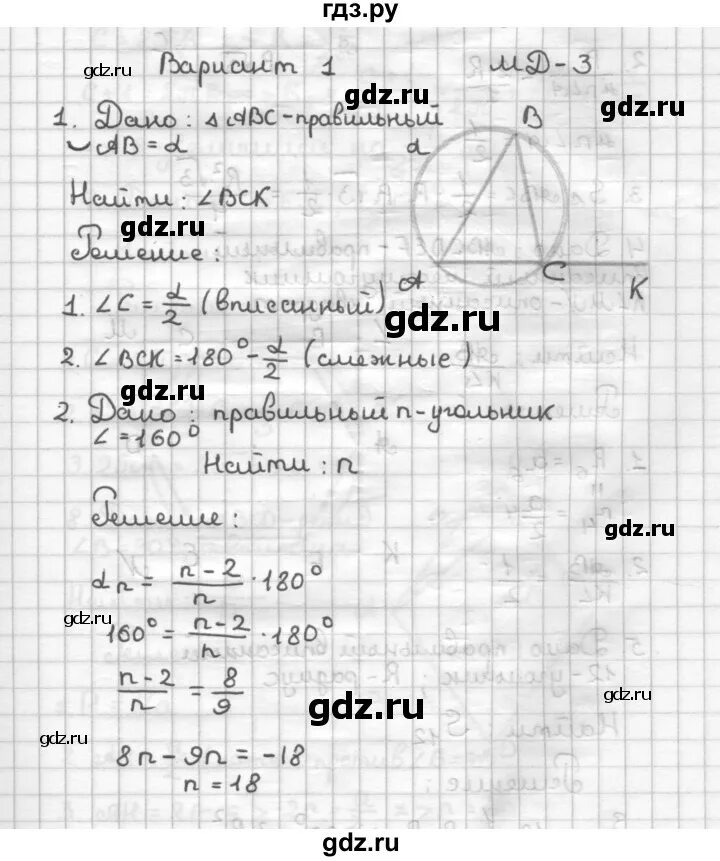 гдз.ру
gdz.ru Вариант 1 МД-3
gdz.ru gdz.ru
1. Дано: △ABC-правильный
◡AB = α
α B
Найти: ∠BCK
gdz.ru
Решение:
A C K
1. ∠C = α/2 (вписанный)
gdz.ru
2. ∠BCK = 180° - α/2 (смежные)
gdz.ru
2. Дано: правильный n-угольник
∠ = 160°
Найти: n
gdz.ru
Решение:
gdz.ru
αn = n-2/n · 180°
gdz.ru
160° = n-2/n · 180°
n-2/n = 8/9
gdz.ru gdz.ru
gdz.ru
8n - 9n = -18
n = 18
gdz.ru
gdz.ru